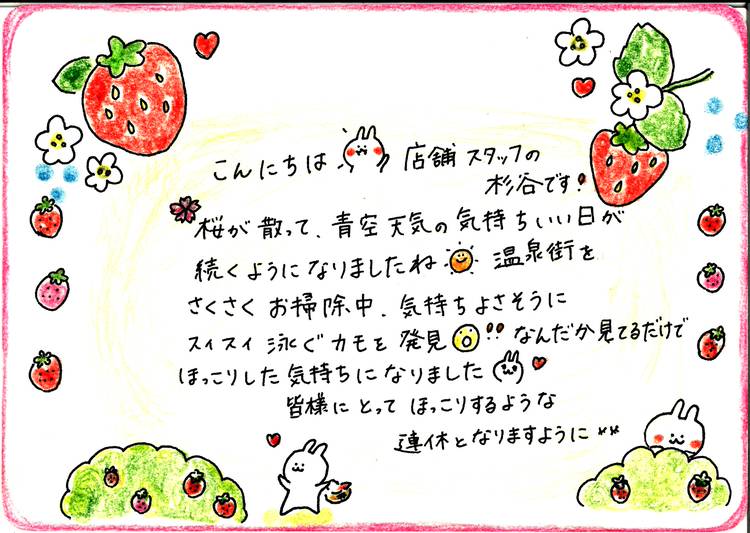 こんにちは 店舗スタッフの
杉谷です!
桜が散って、青空天気の気持ちいい日が
続くようになりましたね 温泉街を
さくさくお掃除中、気持ちよさそうに
スイスイ泳ぐカモを発見!! なんだか見てるだけで
ほっこりした気持ちになりました
皆様にとってほっこりするような
連休となりますように